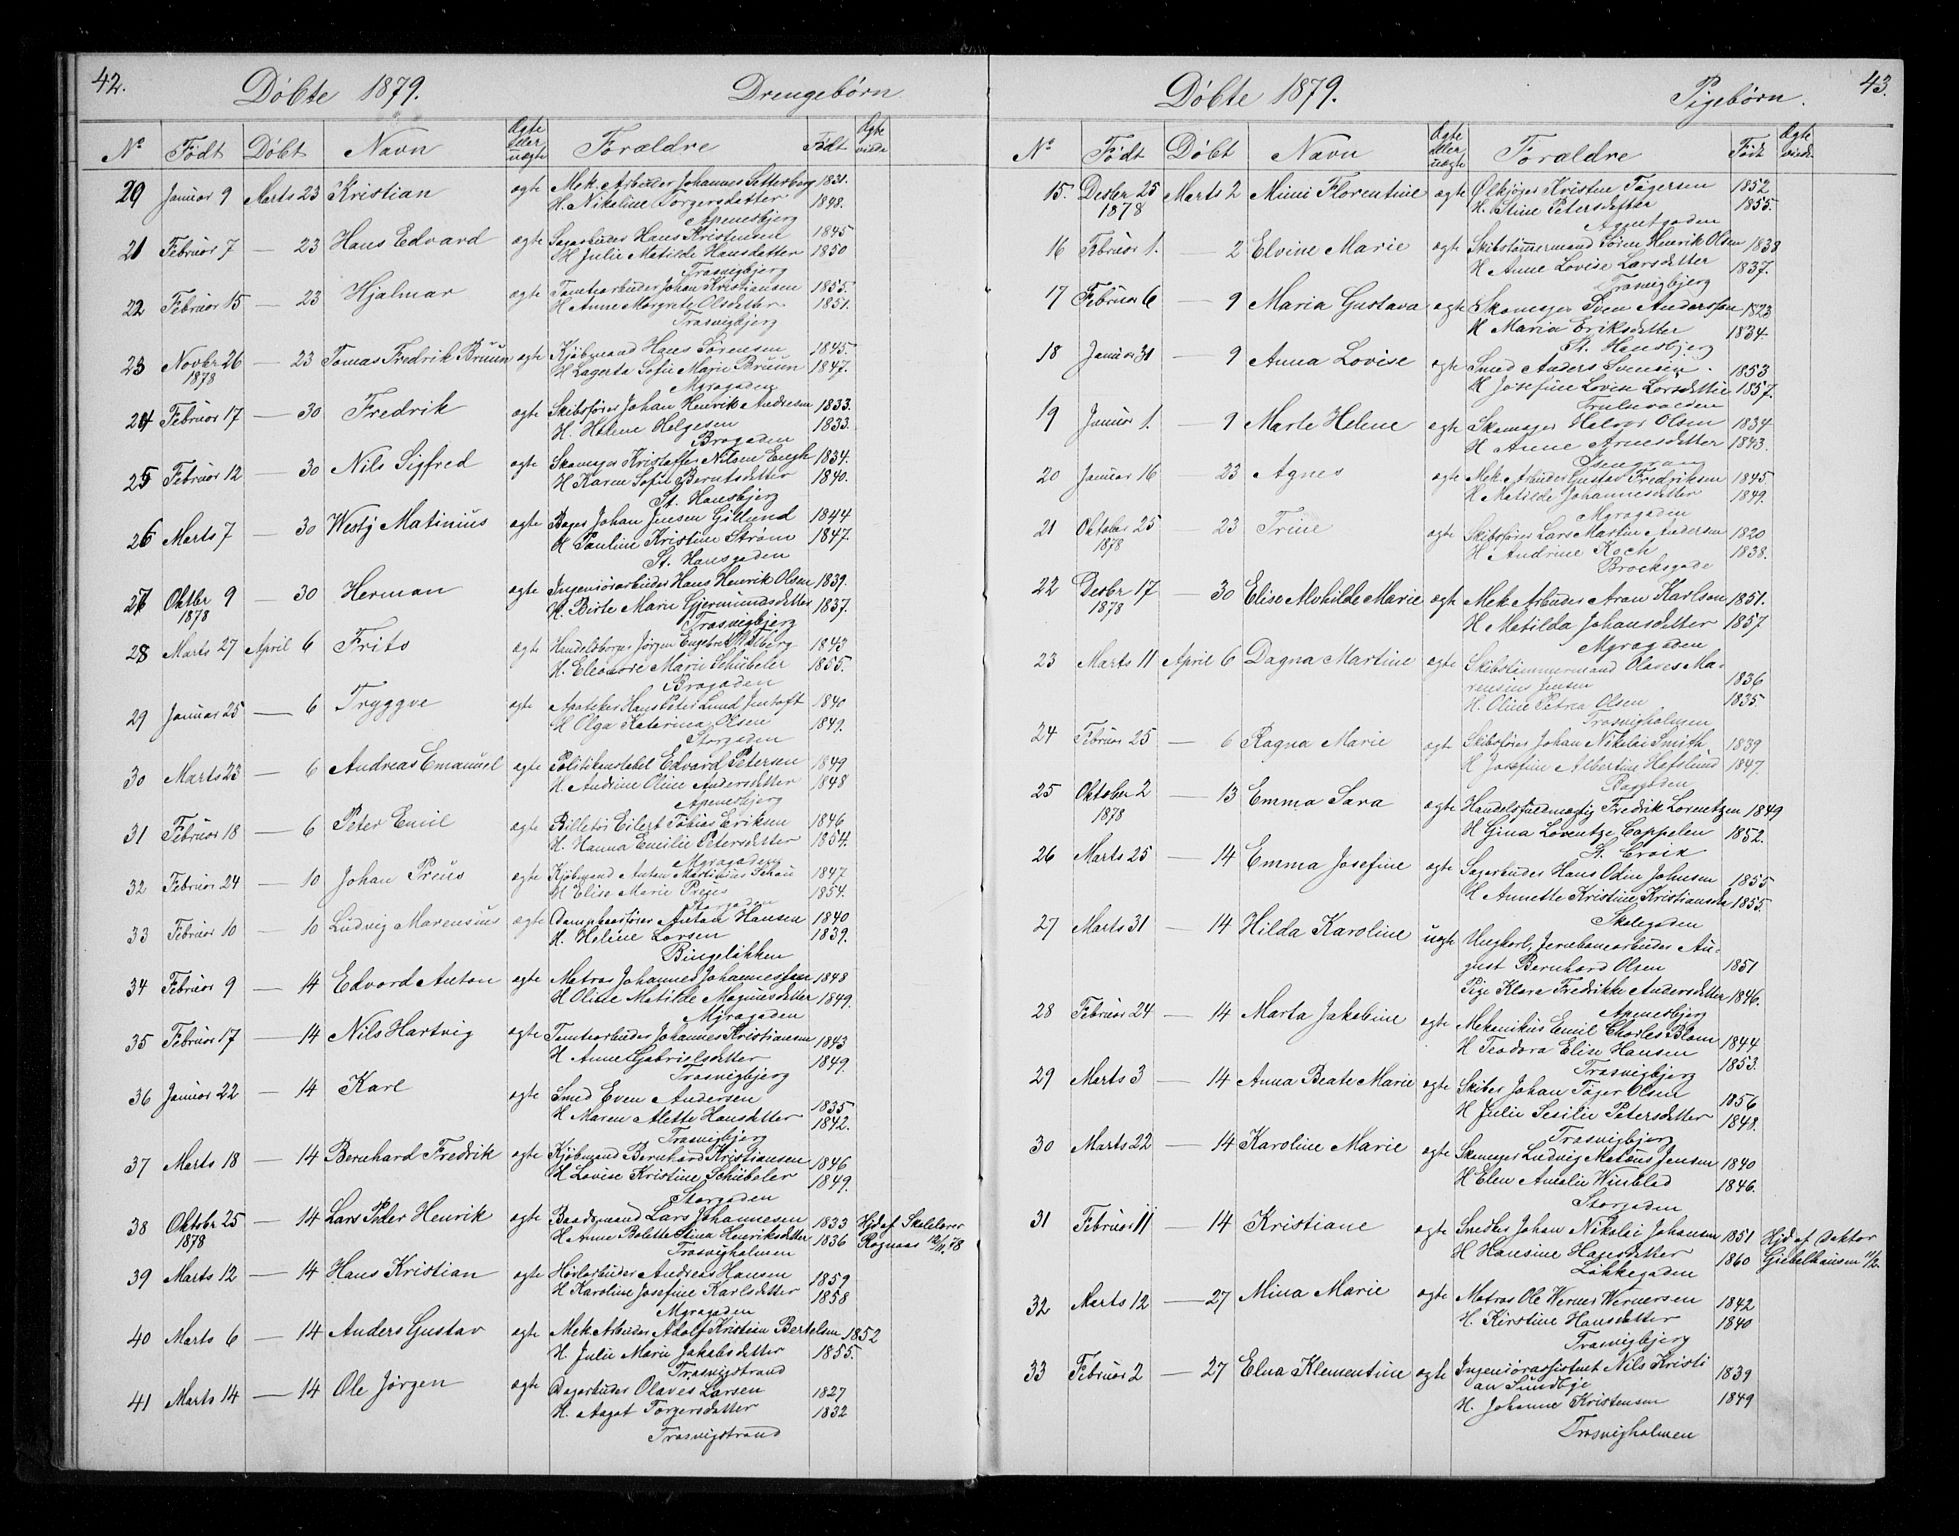 42.
Döbte 1879. Drengebörn.
No Födt Döbt Navn Ægte eller uægte Forældre Födt Ægte viede
20 Januar 9 Marts 23 Kristian ægte Mek. Arbeider Johannes Setterberg 1831.
H. Nikoline Torgersdatter 1848.
Apenesbjerg
21 Februar 7 — 23 Hans Edvard ægte Sagarbeider Hans Kristensen 1845
H Julie Matilde Hansdatter 1850
Trosvigbjerg
22 Februar 15 — 23 Hjalmar ægte Tomtearbeider Johan Kristiansen 1855.
H Anne Margrete Olsdatter 1851.
Trosvigbjerg
23 Novbr 26 — 23 Tomas Fredrik Bruun ægte Kjöbmand Hans Sörensen 1845.
1878 H Lagerta Sofie Marie Bruun 1847.
Myragaden
24 Februar 17 — 30 Fredrik ægte Skibsförer Johan Henrik Andresen 1833.
H. Helene Helgesen 1833.
Brogaden
25 Februar 12 — 30 Nils Sigfred ægte Skomager Kristoffer Nilsen Engh 1834.
H Karen Sofie Berntsdatter 1840.
St. Hansbjerg
26 Marts 7 30 Westj Matinius ægte Bager Johan Jensen Gillund 1844
H Pauline Kristine Ström 1847.
St. Hansgaden
27 Oktbr 9 — 30 Herman ægte Ingeniörarbeider Hans Henrik Olsen 1839.
1878 H. Birte Marie Gjermundsdatter 1837.
Trosvigbjerg
28 Marts 27 April 6 Frits ægte Handelsborger Jörgen Engebret Walberg 1843
H. Eleonore Marie Schübeler 1855.
Brogaden
29 Januar 25 — 6 Tryggve ægte Apoteker Hans Peter Lund Jentoft 1840
H Olga Katerina Olsen 1849.
Storgaden
30 Marts 23 — 6 Andreas Emanuel ægte Politikonstabel Edvard Petersen 1849
H. Andrine Oline Andersdatter 1848
Apenesbjerg
31 Februar 18 — 6 Peter Emil ægte Billetör Eilert Tobias Eriksen 1846
H. Hanna Emilie Petersdatter 1854.
Myragaden
32 Februar 24 — 10 Johan Preus ægte Kjöbmand Anton Martinius Schau 1847
H Elise Marie Preus 1854.
Storgaden
33 Februar 10 — 10 Ludvig Marensius ægte Dampbaadförer Anton Hansen 1840
H. Heline Larsen 1839.
Bingelökken
34 Februar 9 — 14 Edvard Anton ægte Matros Johannes Johannessen 1848
H Oline Matilde Magnusdatter 1849.
Myragaden
35 Februar 17 — 14 Nils Hartvig ægte Tomtearbeider Johannes Kristiansen 1843
H Anne Gabrielsdatter 1849.
Trosvigbjerg
36 Januar 22 — 14 Karl ægte Smed Even Andersen 1835
H Maren Alette Hansdatter 1842.
Trosvigbjerg
37 Marts 18 — 14 Bernhard Fredrik ægte Kjöbmand Bernhard Kristiansen 1846
H Lovise Kristine Schübeler 1849.
Storgaden
38 Oktobr 25 — 14 Lars Peter Henrik ægte Baadsmand Lars Johannesen 1833 Hjd af Skolelærer
1878 H Anne Bolette Stina Henriksdatter 1836 Rognaas 12/11 78
Trosvigholmen
39 Marts 12 — 14 Hans Kristian ægte Hörlarbeider Andreas Hansen 1859
H Karoline Josefine Karlsdatter 1858
Myragaden
40 Marts 6 — 14 Anders Gustav ægte Mek Arbeider Adolf Kristian Bertelsen 1852
H. Julie Marie Jakobsdatter 1855.
Trosvigstrand
41 Marts 14 — 14 Ole Jörgen ægte Dagarbeider Olaves Larsen 1827
H. Aagot Torgersdatter 1832
Trosvigstrand
43.
Döbte 1879. Pigebörn.
No Födt Döbt Navn Ægte eller uægte Forældre Födt Ægte viede
15. Desbr 25 Marts 2 Mimi Florentine ægte Ölkjörer Kristen Tögersen 1852
1878 H. Stine Petersdatter 1855.
Agentgaden
16 Februar 1. — 2 Elvine Marie ægte Skibstömmermand Sören Henrik Olsen 1838
H Anne Lovise Larsdatter 1837.
Trosvigbjerg
17 Februar 6 — 9 Maria Gustava ægte Skomager Sven Anderssen 1823
H Maria Eriksdatter 1834.
St. Hansbjerg
18 Januar 31 — 9 Anna Lovise ægte Smed Anders Svensen 1853
H Josefine Lovise Larsdatter 1857.
Trulsevolden
19 Januar 1. — 9 Marte Helene ægte Skomager Halvor Olsen 1834
H Anne Arnesdatter 1843.
20 Januar 16 — 23 Agnes ægte Mek Arbeider Gustav Fredriksen 1845.
H Matilde Johannesdatter 1849.
Myragaden
21 Oktober 25 — 23 Trine ægte Skibsförer Lars Martin Andersen 1820
1878 H Andrine Koch 1838.
Brocksgade
22 Desbr 17 — 30 Elise Mohilde Marie ægte Mek Arbeider Aron Karlson 1851.
1878 H Matilda Johansdatter 1857
Myragaden
23 Marts 11 April 6 Dagna Martine ægte Skibstömmermand Olaves Ma-
rensius Jensen 1836
H. Oline Petrea Olsen 1835
Trosvigholmen
24 Februar 25 — 6 Ragna Marie ægte Skibsförer Johan Nikolai Smith 1839
H Josefine Albertine Hafslund 1847.
25 Oktober 2 — 13 Emma Sara ægte Handelsfuldmægtig Fredrik Lorentzen 1849
1878 H Gina Lorentze Cappelen 1852.
St. Croix
26 Marts 25 — 14 Emma Josefine ægte Sagarbeider Hans Odin Johnsen 1855
H Annette Kristine Kristiansda 1855.
Skolegaden
27 Marts 31 — 14 Hilda Karoline uægte Ungkarl, Jernbanearbeider Au-
gust Bernhard Olsen 1851
Pige Klara Fredrikke Andersdatter 1846.
Apenesbjerg
28 Februar 24 — 14 Marta Jakobine ægte Mekanikus Emil Charles Blom 1844
H Teodora Elise Hansen 1853.
Trosvigbjerg
29 Marts 3 — 14 Anna Beate Marie ægte Skiber Johan Töger Olsen 1856
H Julie Sesilie Petersdatter 1848.
Trosvigbjerg
30 Marts 22 — 14 Karoline Marie ægte Skomager Ludvig Matæus Jensen 1840
H Elen Amalie Winblad 1846.
Storgaden
31 Februar 11 — 14 Kristiane ægte Snedker Johan Nikolai Johansen 1851 Hjd af Doktor
H Hansine Hansdatter 1860 Giebelhausen 11/2.
Lökkegaden
32 Marts 12 — 27 Mina Marie ægte Matros Ole Werner Wernersen 1842
H. Kirstine Hansdatter 1840
Trosvigbjerg
33 Februar 2 — 27 Elna Klementine ægte Ingeniörassistent Nils Kristi
an Sundbye 1839
H. Johanne Kristensen 1849
Trosvigholmen